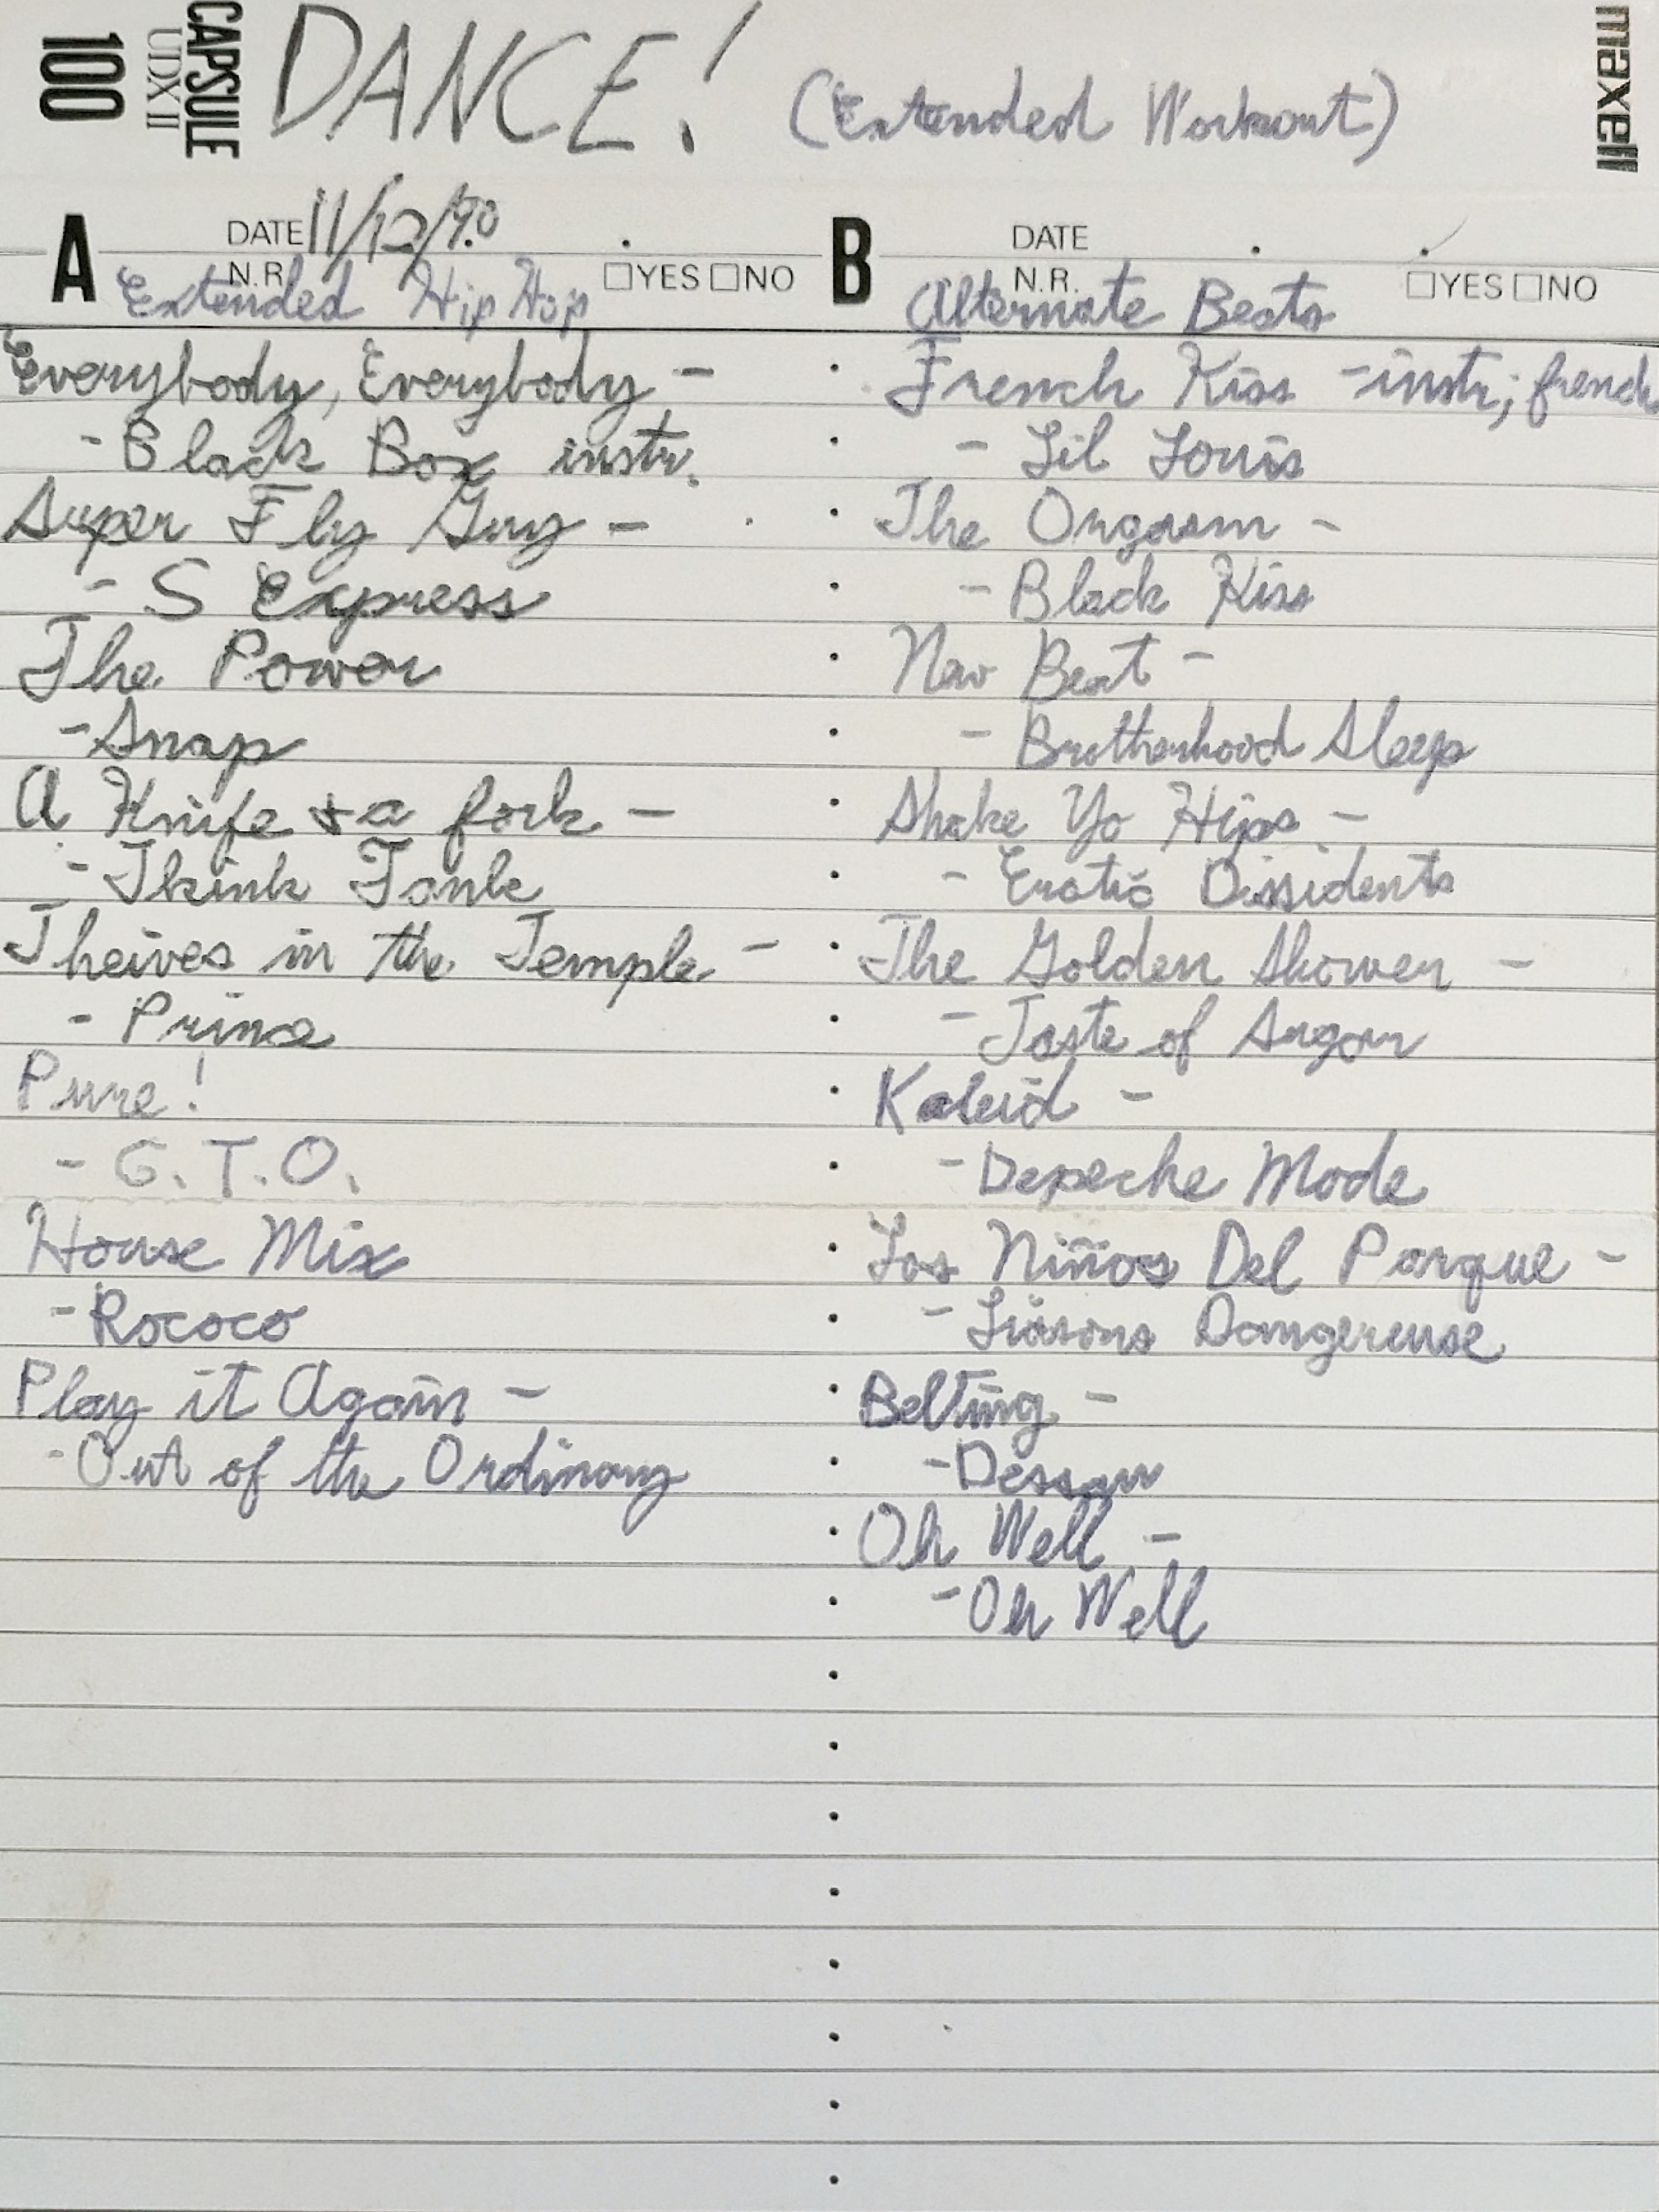 100
CAPSULE
UDX II
DANCE! (Extended Workout)
maxell
A
DATE 11/12/90
N.R. □YES □NO
Extended Hip Hop
Everybody, Everybody -
- Black Box instr.
Super Fly Guy -
- S Express
The Power
- Snap
A Knife + a fork -
- Think Tank
Theives in the Temple -
- Prince
Pure!
- G.T.O.
House Mix
- Rococo
Play it Again -
- Out of the Ordinary
B
DATE
N.R. □YES □NO
Alternate Beats
French Kiss - instr; french
- Lil Louis
The Orgasm -
- Black Kiss
New Beat -
- Brotherhood Sleep
Shake Yo Hips -
- Erotic Dissidents
The Golden Shower -
- Taste of Sugar
Kaleid -
- Depeche Mode
Los Niños Del Parque -
- Liasons Dangereuse
Belting -
- Dessau
Oh Well -
- Oh Well